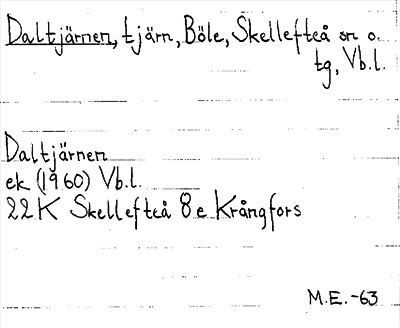 Daltjärnen, tjärn, Böle, Skellefteå sn o.
tg, Vb.l.
Daltjärnen
ek (1960) Vb.l.
22K Skellefteå 8e Krångfors
M.E.-63